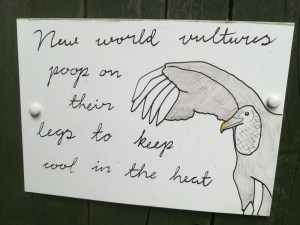 New world vultures
poop on
their
legs to keep
cool in the heat